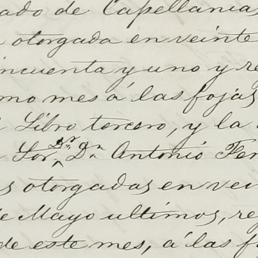 ado de Capellanias
otorgada en veinte
incuenta y uno y re
mo mes á las fojas
Libro tercero, y la
Sor. Dr. Dn. Antonio Fer
s otorgadas en vei
e Mayo ultimos, re
de este mes, á las f